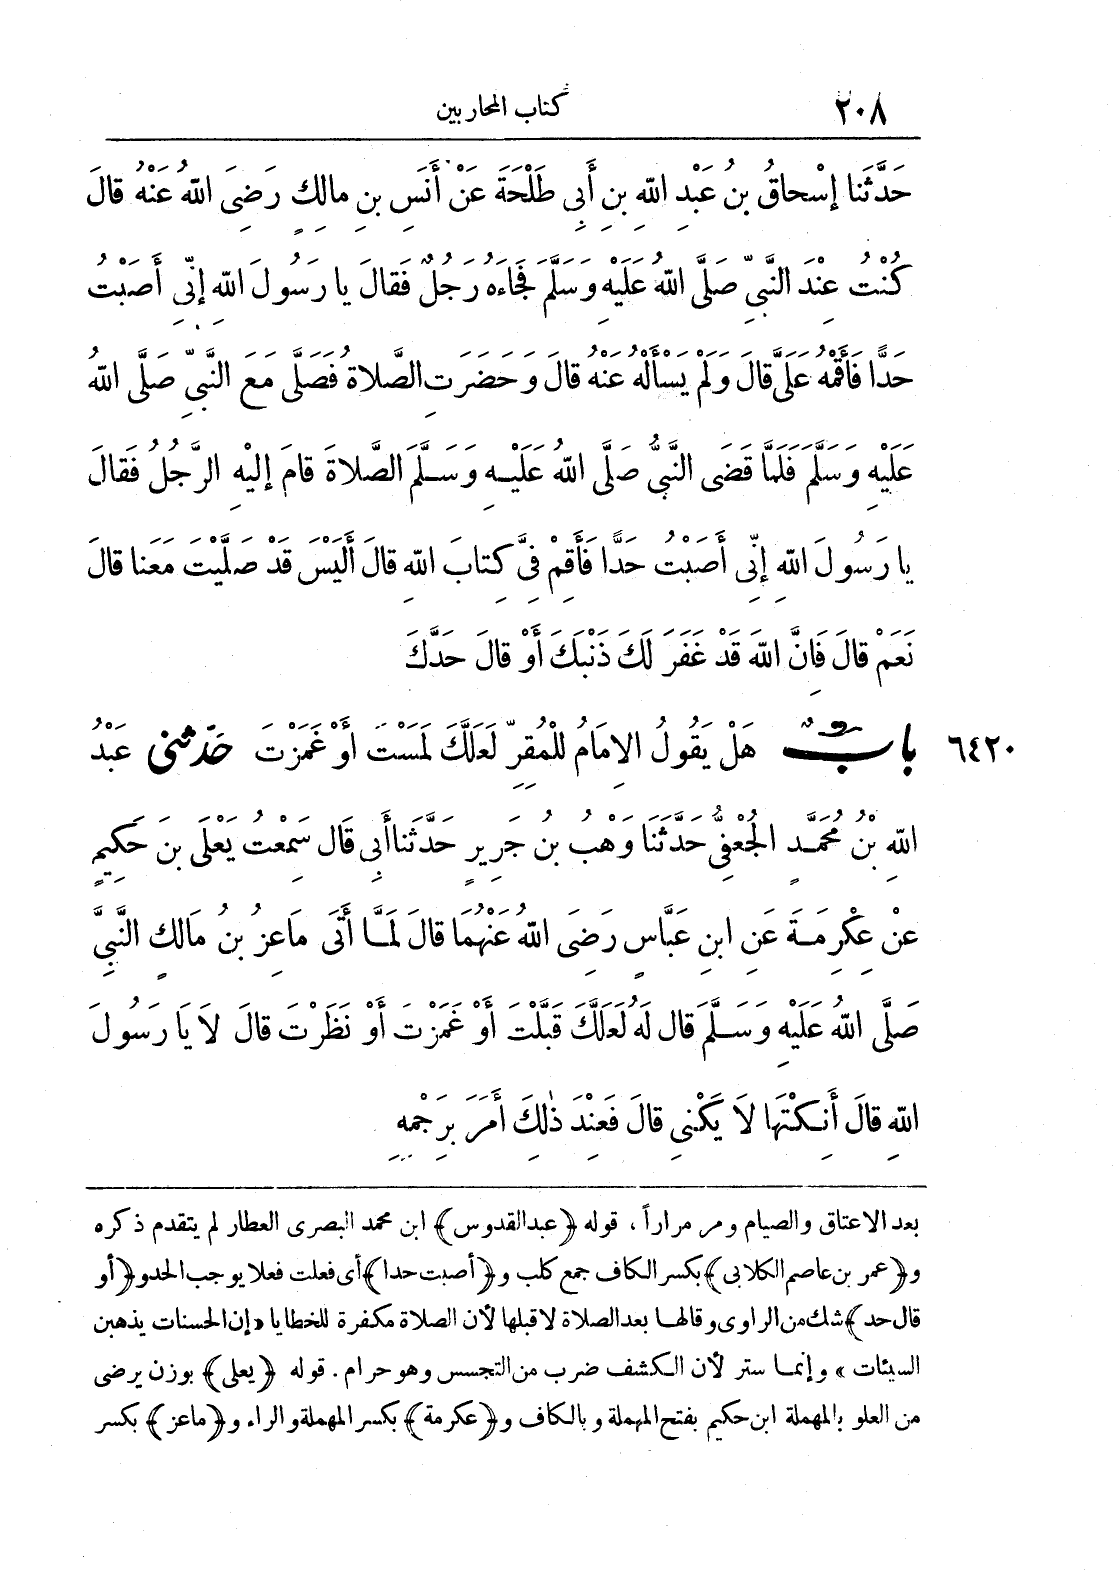 ٢٠٨ كتاب المحاربين
حَدَّثَنا إِسْحاقُ بنُ عَبْدِ اللهِ بنِ أَبِى طَلْحَةَ عَنْ أَنَسِ بنِ مالِكٍ رَضِىَ اللهُ عَنْهُ قالَ
كُنْتُ عِنْدَ النَّبِىِّ صَلَّى اللهُ عَلَيْهِ وَسَلَّمَ فَجَاءَهُ رَجُلٌ فَقالَ يا رَسُولَ اللهِ إِنِّى أَصَبْتُ
حَدًّا فَأَقِمْهُ عَلَىَّ قالَ وَلَمْ يَسأَلْهُ عَنْهُ قالَ وَحَضَرَتِ الصَّلاةُ فَصَلَّى مَعَ النَّبِىِّ صَلَّى اللهُ
عَلَيْهِ وَسَلَّمَ فَلَمَّا قَضَى النَّبِىُّ صَلَّى اللهُ عَلَيْهِ وَسَلَّمَ الصَّلاةَ قامَ إِلَيْهِ الرَّجُلُ فَقالَ
يا رَسُولَ اللهِ إِنِّى أَصَبْتُ حَدًّا فَأَقِمْ فِىَّ كِتابَ اللهِ قالَ أَلَيْسَ قَدْ صَلَّيْتَ مَعَنا قالَ
نَعَمْ قالَ فَانَّ اللهَ قَدْ غَفَرَ لَكَ ذَنْبَكَ أَوْ قالَ حَدَّكَ
٦٤٢٠ بابٌ هَلْ يَقُولُ الامَامُ لِلْمُقِرِّ لَعَلَّكَ لَمَسْتَ أَوْ غَمَزْتَ حَدَّثنى عَبْدُ
اللهِ بْنُ مُحَمَّدٍ الجُعْفِىُّ حَدَّثَنَا وَهْبُ بنُ جَرِيرٍ حَدَّثَنا أَبِى قَالَ سَمِعْتُ يَعْلَى بنَ حَكِيمٍ
عَنْ عِكْرِمَةَ عَنِ ابنِ عَبَّاسٍ رَضِىَ اللهُ عَنْهُمَا قالَ لَمَّا أَتَى مَاعِزُ بنُ مَالِكٍ النَّبِىَّ
صَلَّى اللهُ عَلَيْهِ وَسَلَّمَ قالَ لَهُ لَعَلَّكَ قَبَّلْتَ أَوْ غَمَزْتَ أَوْ نَظَرْتَ قالَ لَا يَا رَسُولَ
اللهِ قالَ أَنِكْتَهَا لَا يَكْنِى قالَ فَعِنْدَ ذٰلِكَ أَمَرَ بِرَجْمِهِ
بعد الاعتاق والصيام ومر مراراً ، قوله ﴿عبدالقدوس﴾ ابن محمد البصرى العطار لم يتقدم ذكره
و﴿عمر بن عاصم الكلابى﴾ بكسر الكاف جمع كلب و﴿أصبت حدا﴾ أى فعلت فعلا يوجب الحد و﴿أو
قال حد﴾ شك من الراوى وقالها بعد الصلاة لا قبلها لأن الصلاة مكفرة للخطايا «إن الحسنات يذهبن
السيئات » وإنما ستر لأن الكشف ضرب من التجسس وهو حرام . قوله ﴿يعلى﴾ بوزن يرضى
من العلو بالمهملة ابن حكيم بفتح المهملة وبالكاف و﴿عكرمة﴾ بكسر المهملة والراء و﴿ماعز﴾ بكسر